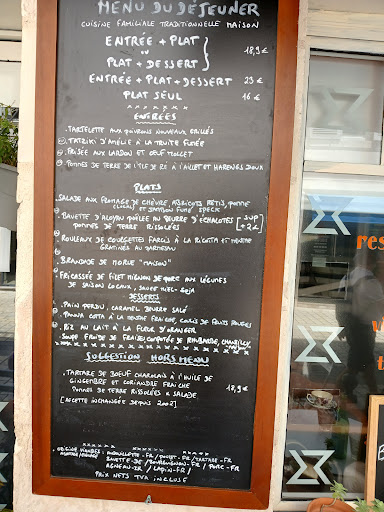 MENU DU DÉJEUNER
CUISINE FAMILIALE TRADITIONNELLE MAISON
ENTRÉE + PLAT
OU
PLAT + DESSERT
18,9€
ENTRÉE + PLAT + DESSERT 23 €
PLAT SEUL 16 €
ENTRÉES
. TARTELETTE AUX POIVRONS NOUVEAUX GRILLÉS
. TATZIKI D'AMÉLIE À LA TRUITE FUMÉE
. FRISÉE AUX LARDON ET OEUF MOLLET
. POMMES DE TERRE DE L'ÎLE DE RÉ À L'AILLET ET HARENGS DOUX
PLATS
. SALADE AUX FROMAGE DE CHÈVRE, ABRICOTS RÔTIS, POMME
ET JAMBON FUMÉ SPECK
. BAVETTE D'ALOYAU POÊLÉE AU BEURRE D'ÉCHALOTES
POMMES DE TERRE RISSOLÉES
[SUP +2€]
. ROULEAUX DE COURGETTES FARCIS À LA RICOTTA ET MENTHE
GRATINÉS AU PARMESAN
. BRANDADE DE MORUE "MAISON"
. FRICASSÉE DE FILET MIGNON DE PORC AUX LÉGUMES
DE SAISON LOCAUX, SAUCE MIEL-SOJA
DESSERTS
. PAIN PERDU, CARAMEL BEURRE SALÉ
. PANNA COTTA À LA MENTHE FRAICHE, COULIS DE FRUITS ROUGES
. RIZ AU LAIT À LA FLEUR D'ORANGER
. SOUPE FROIDE DE FRAISES COMPOTÉE DE RHUBARBE, CHANTILLY
SUGGESTION HORS MENU
. TARTARE DE BOEUF CHAROLAIS À L'HUILE DE
GINGEMBRE ET CORIANDRE FRAICHE
POMMES DE TERRE RISSOLÉES & SALADE
18,9€
[RECETTE INCHANGÉE DEPUIS 2002]
. ORIGINE VIANDES:
PRIX NETS TVA INCLUSE
res